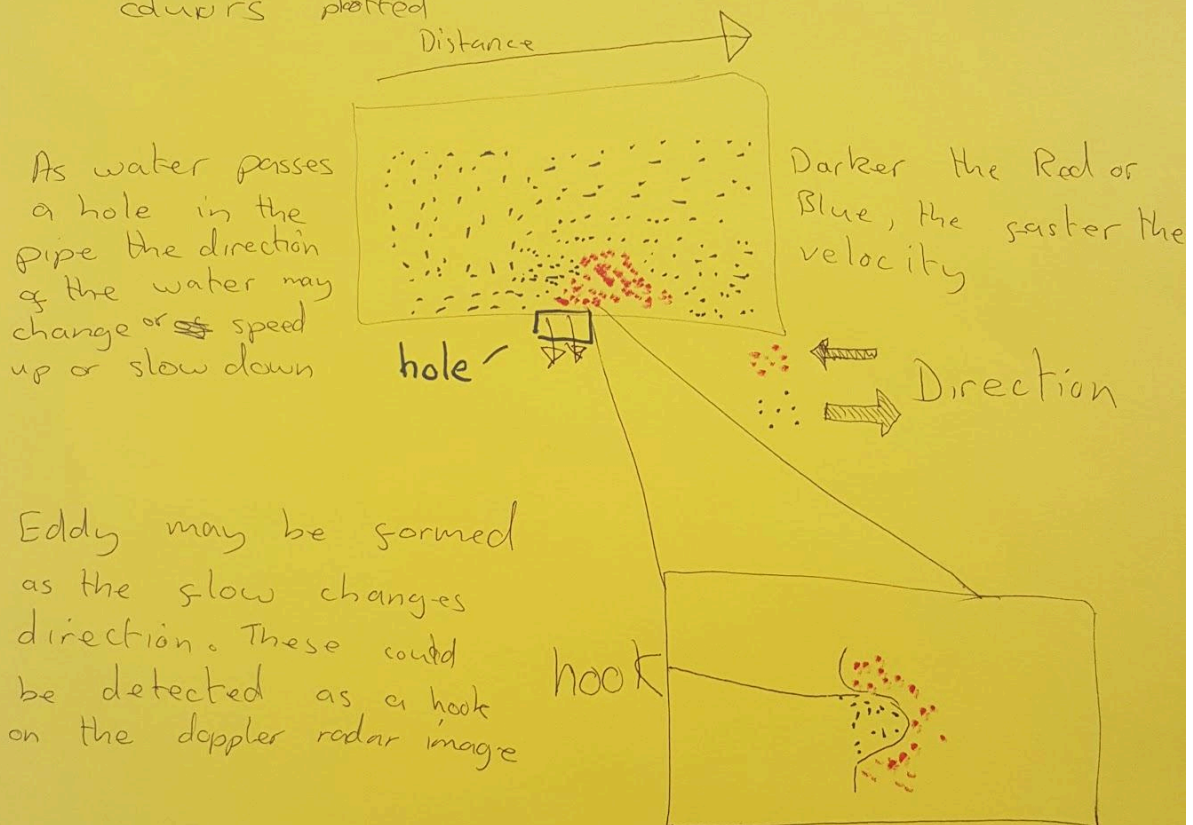 colours plotted
Distance
As water passes
a hole in the
pipe the direction
of the water may
change or speed
up or slow down
Darker the Red or
Blue, the faster the
velocity
hole
Direction
Eddy may be formed
as the flow changes
direction. These could
be detected as a hook
on the doppler radar image
hook